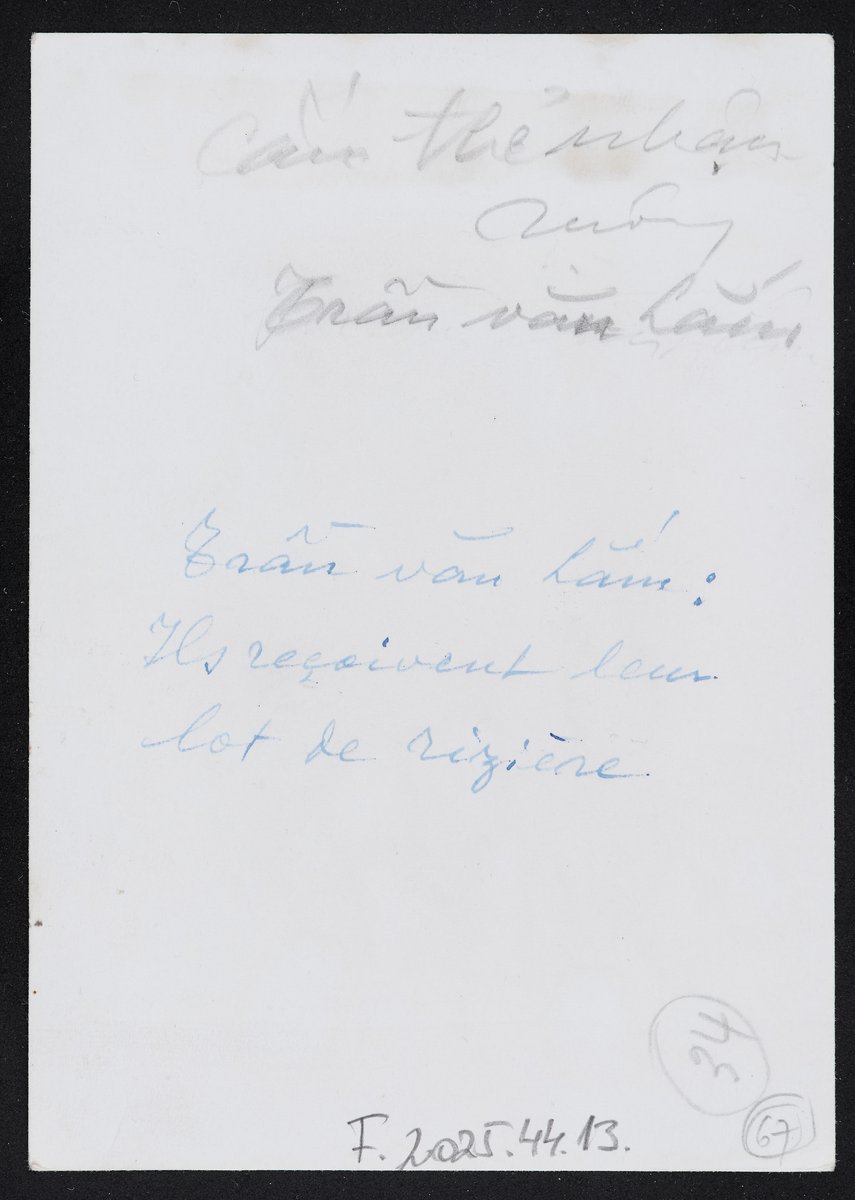 cắm thẻ nhận
ruộng
Trần văn Lắm
Trần văn Lắm:
Ils reçoivent leur
lot de rizière
34
67
F. 2025.44.13.